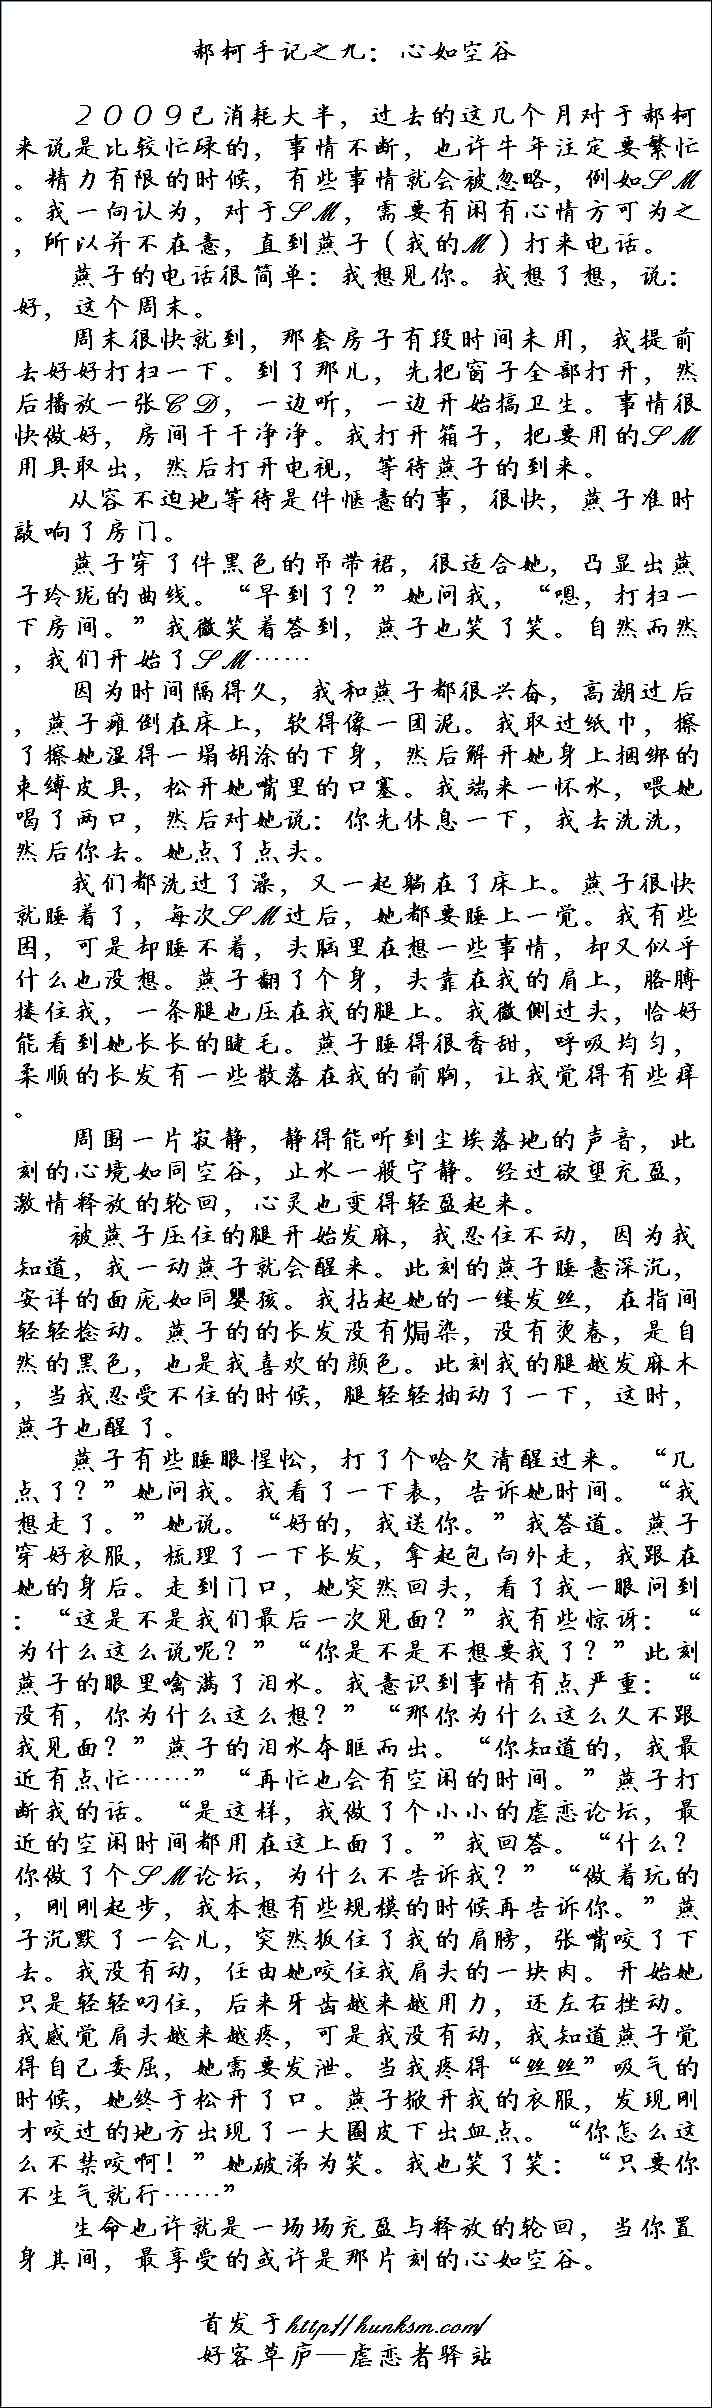 郝柯手记之九：心如空谷
２００９已消耗大半，过去的这几个月对于郝柯
来说是比较忙碌的，事情不断，也许牛年注定要繁忙
。精力有限的时候，有些事情就会被忽略，例如SM
。我一向认为，对于SM，需要有闲有心情方可为之
，所以并不在意，直到燕子（我的M）打来电话。
燕子的电话很简单：我想见你。我想了想，说：
好，这个周末。
周末很快就到，那套房子有段时间未用，我提前
去好好打扫一下。到了那儿，先把窗子全部打开，然
后播放一张CD，一边听，一边开始搞卫生。事情很
快做好，房间干干净净。我打开箱子，把要用的SM
用具取出，然后打开电视，等待燕子的到来。
从容不迫地等待是件惬意的事，很快，燕子准时
敲响了房门。
燕子穿了件黑色的吊带裙，很适合她，凸显出燕
子玲珑的曲线。“早到了？”她问我，“嗯，打扫一
下房间。”我微笑着答到，燕子也笑了笑。自然而然
，我们开始了SM……
因为时间隔得久，我和燕子都很兴奋，高潮过后
，燕子瘫倒在床上，软得像一团泥。我取过纸巾，擦
了擦她湿得一塌胡涂的下身，然后解开她身上捆绑的
束缚皮具，松开她嘴里的口塞。我端来一怀水，喂她
喝了两口，然后对她说：你先休息一下，我去洗洗，
然后你去。她点了点头。
我们都洗过了澡，又一起躺在了床上。燕子很快
就睡着了，每次SM过后，她都要睡上一觉。我有些
困，可是却睡不着，头脑里在想一些事情，却又似乎
什么也没想。燕子翻了个身，头靠在我的肩上，胳膊
搂住我，一条腿也压在我的腿上。我微侧过头，恰好
能看到她长长的睫毛。燕子睡得很香甜，呼吸均匀，
柔顺的长发有一些散落在我的前胸，让我觉得有些痒
。
周围一片寂静，静得能听到尘埃落地的声音，此
刻的心境如同空谷，止水一般宁静。经过欲望充盈，
激情释放的轮回，心灵也变得轻盈起来。
被燕子压住的腿开始发麻，我忍住不动，因为我
知道，我一动燕子就会醒来。此刻的燕子睡意深沉，
安详的面庞如同婴孩。我拈起她的一缕发丝，在指间
轻轻捻动。燕子的的长发没有焗染，没有烫卷，是自
然的黑色，也是我喜欢的颜色。此刻我的腿越发麻木
，当我忍受不住的时候，腿轻轻抽动了一下，这时，
燕子也醒了。
燕子有些睡眼惺忪，打了个哈欠清醒过来。“几
点了？”她问我。我看了一下表，告诉她时间。“我
想走了。”她说。“好的，我送你。”我答道。燕子
穿好衣服，梳理了一下长发，拿起包向外走，我跟在
她的身后。走到门口，她突然回头，看了我一眼问到
：“这是不是我们最后一次见面？”我有些惊讶：“
为什么这么说呢？”“你是不是不想要我了？”此刻
燕子的眼里噙满了泪水。我意识到事情有点严重：“
没有，你为什么这么想？”“那你为什么这么久不跟
我见面？”燕子的泪水夺眶而出。“你知道的，我最
近有点忙……”“再忙也会有空闲的时间。”燕子打
断我的话。“是这样，我做了个小小的虐恋论坛，最
近的空闲时间都用在这上面了。”我回答。“什么？
你做了个SM论坛，为什么不告诉我？”“做着玩的
，刚刚起步，我本想有些规模的时候再告诉你。”燕
子沉默了一会儿，突然扳住了我的肩膀，张嘴咬了下
去。我没有动，任由她咬住我肩头的一块肉。开始她
只是轻轻叼住，后来牙齿越来越用力，还左右挫动。
我感觉肩头越来越疼，可是我没有动，我知道燕子觉
得自己委屈，她需要发泄。当我疼得“丝丝”吸气的
时候，她终于松开了口。燕子掀开我的衣服，发现刚
才咬过的地方出现了一大圈皮下出血点。“你怎么这
么不禁咬啊！”她破涕为笑。我也笑了笑：“只要你
不生气就行……”
生命也许就是一场场充盈与释放的轮回，当你置
身其间，最享受的或许是那片刻的心如空谷。
首发于http://hunksm.com/
好客草庐—虐恋者驿站